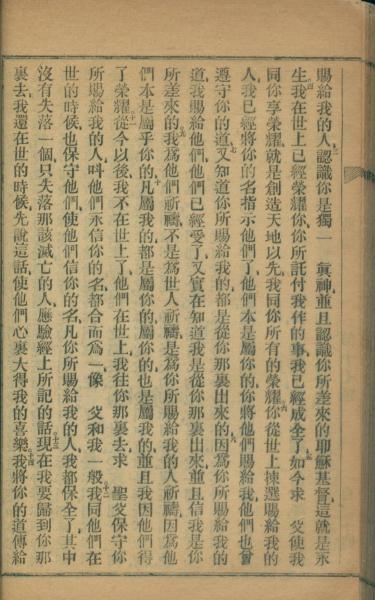 賜給我的人三認識你是獨一 眞神並且認識你所差來的耶穌基督這就是永
生四我在世上已經榮耀你你所託付我作的事我已經成全了五如今求 父使我
同你享榮耀就是創造天地以先我同你所有的榮耀六你從世上揀選賜給我的
人我已經將你的名指示他們了他們本是屬你的你將他們賜給我他們也曾
遵守你的道七又知道你所賜給我的都是從你那裏出來的八因爲你所賜給我的
道我賜給他們他們已經受了又實在知道我是從你那裏出來並且信我是你
所差來的九我爲他們祈禱不是爲世人祈禱是爲你所賜給我的人祈禱因爲他
們本是屬乎你的十凡屬我的都是屬你的屬你的也是屬我的並且我因他們得
了榮耀十一從今以後我不在世上了他們在世上我往你那裏去求 聖父保守你
所賜給我的人叫他們永信你的名都合而爲一像 父和我一般十二我同他們在
世的時候也保守他們使他們信你的名凡你所賜給我的人我都保全了其中
沒有失落一個只失落那該滅亡的人應驗經上所記的話十三現在我要歸到你那
裏去我還在世的時候先說這話使他們心裏大得我的喜樂十四我將你的道傳給